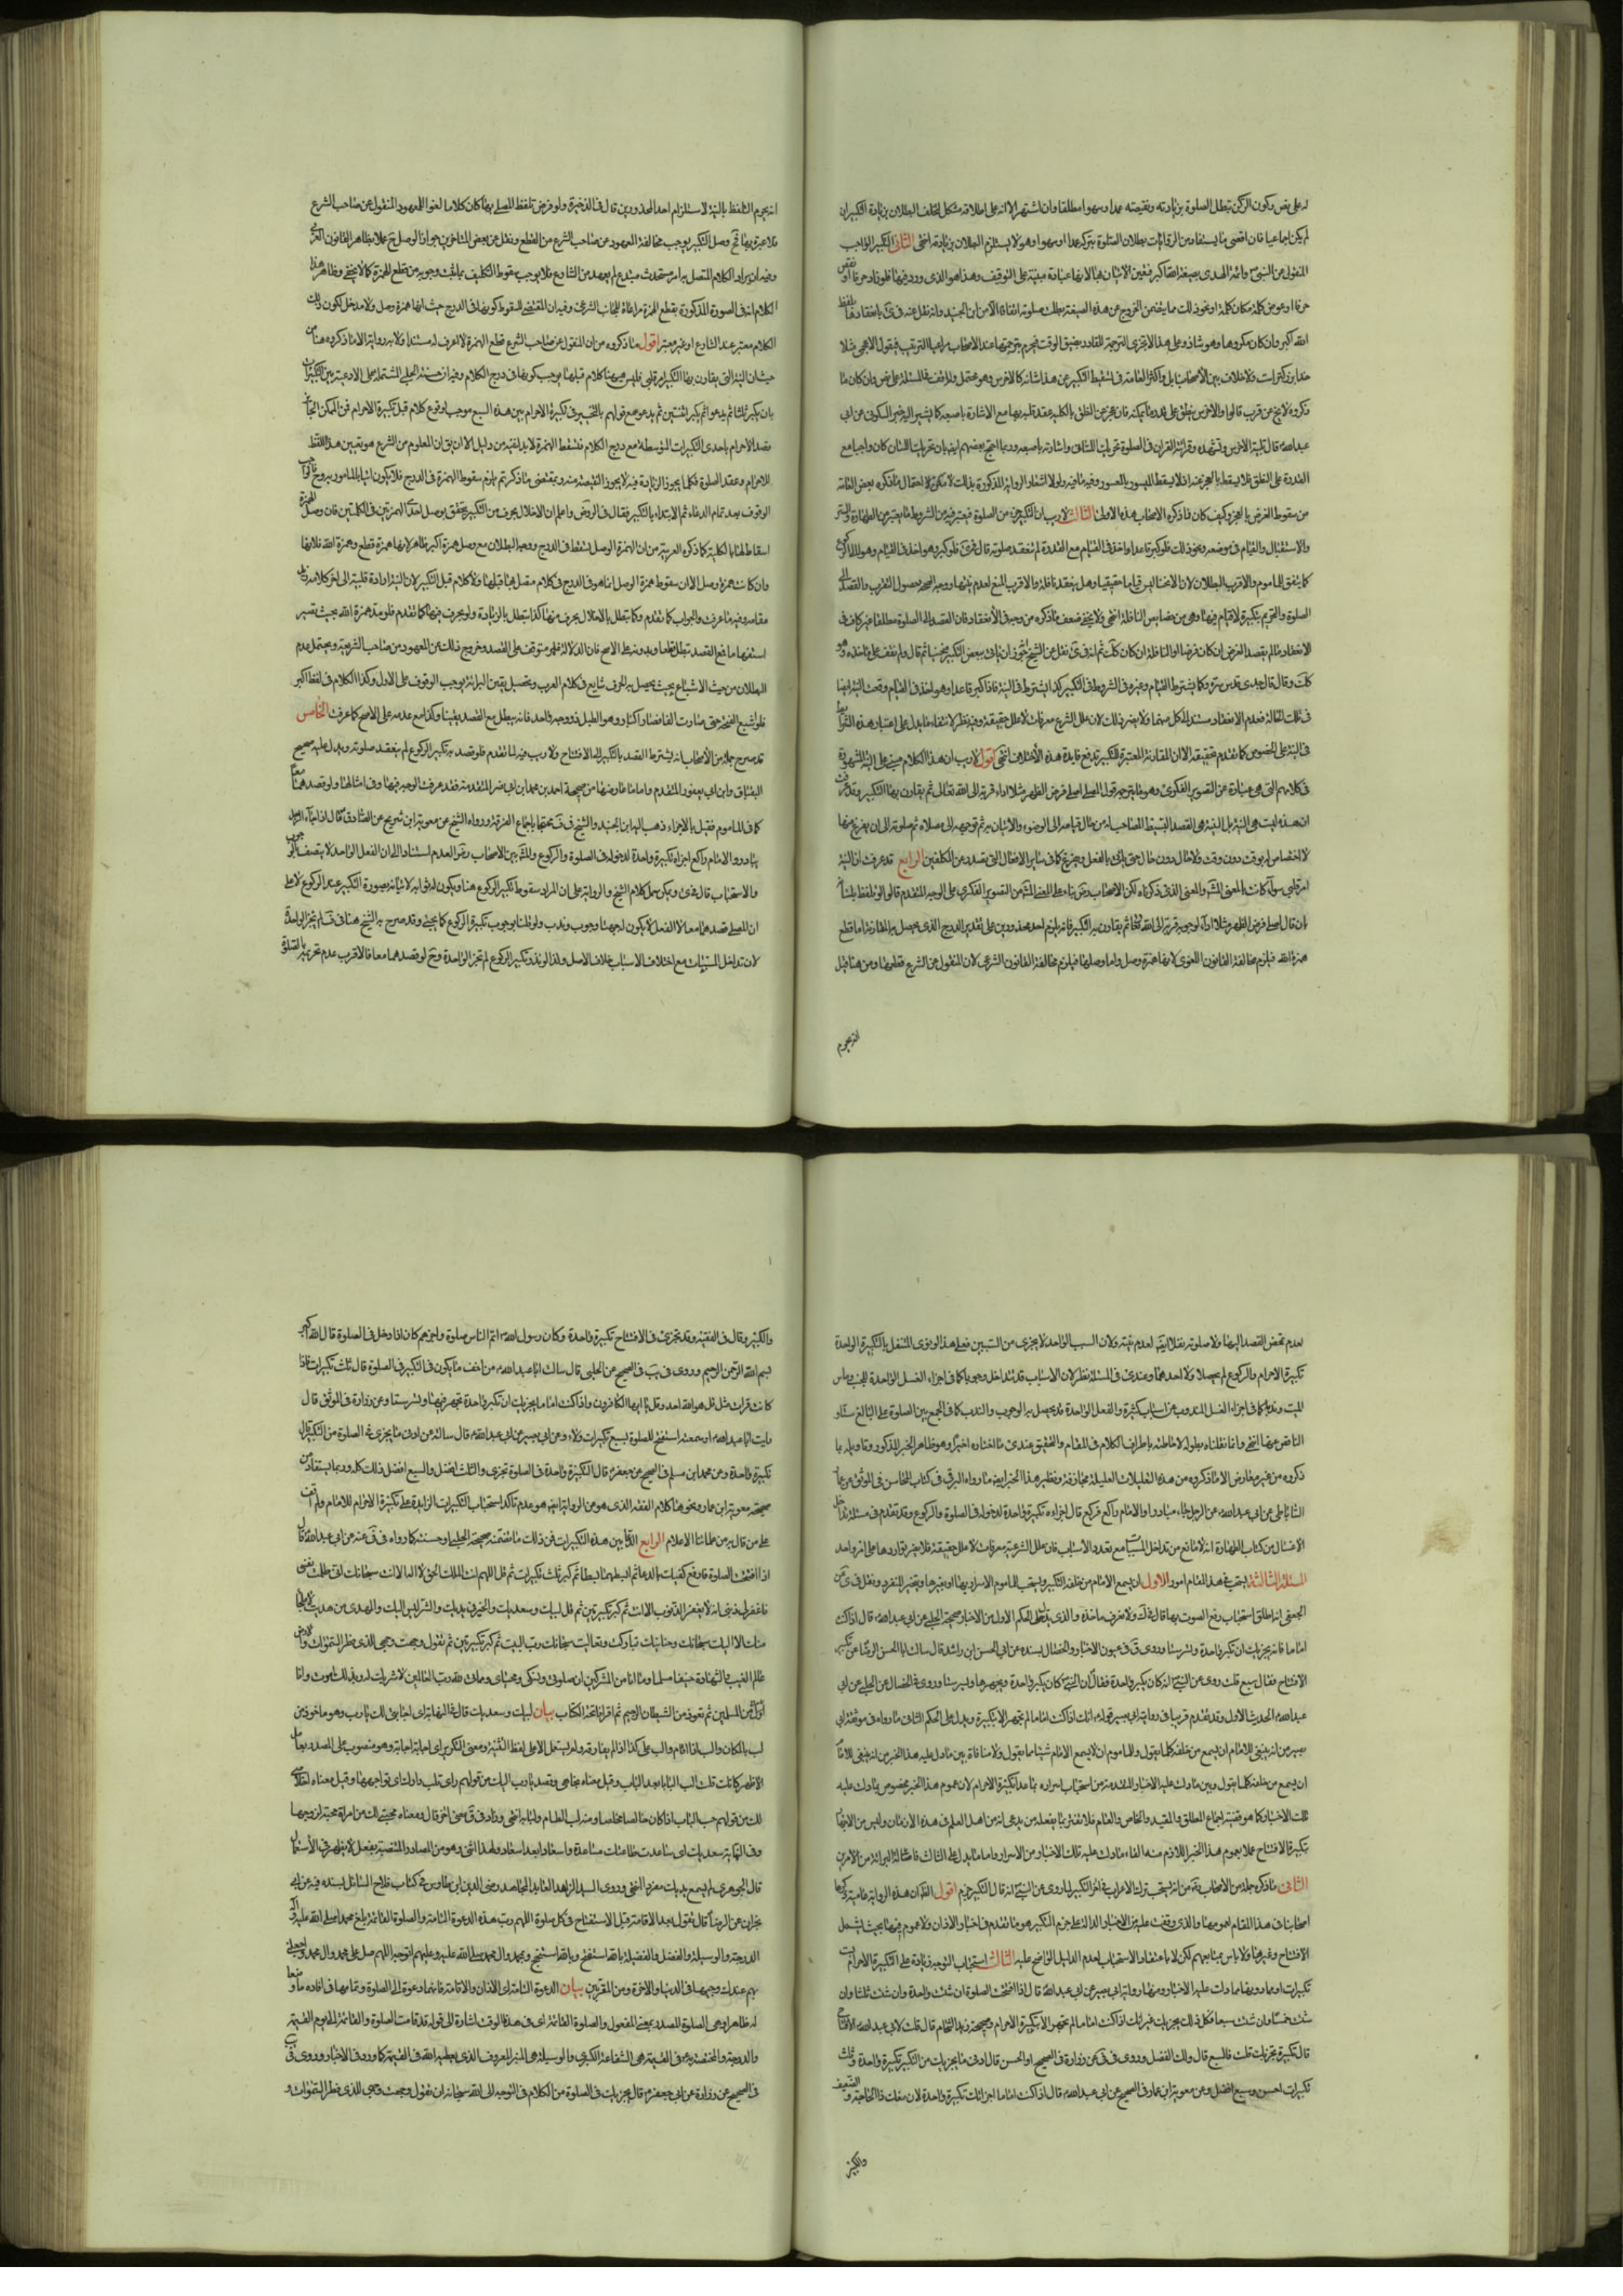 له على نص وكون الركن تبطل الصلوة بزيادته ونقيصته عمدا وسهوا مطلقا وان اشتهر الا انه على اطلاقه مشكل لتخلف البطلان بزيادة التكبير ان
لم يكن اجماعيا فان اقصى ما يستفاد من الروايات بطلان الصلوة بتركه عمدا او سهوا وهو لا يستلزم البطلان بزيادته انتهى الثانى التكبير الواجب
المنقول عن النبي وائمة الهدى بصيغة الله اكبر فتعين الاتيان بها لانها عبادة مبنية على التوقيف وهذا هو الذى ورد فيها فلو زاد حرفا او نقص
حرفا او عوض كلمة مكان كلمة او نحو ذلك مما يخص من الخروج عن هذه الصيغة بطلت صلوته اتفاقا الا من ابن الجنيد وانه نقل عنه فى بانعقادها بلفظ
الله اكبر وان كان مكروها وهو شاذ وعلى هذا لا تجزى الترجمة للقادر ضيق الوقت فيحرم بترجمتها عند الاصحاب مراعيا الترتيب فيقول الاعجمى مثلا
خدا بزركتر است ولا خلاف بين الاصحاب بل واكثر العامة فى
ذكروه لا يخ عن قرب قالوا والاخرس ينطق على قدر ما يمكنه فان عجز عن النطق بالكلية عقد قلبه بها مع الاشارة باصبعه كما يشير اليه خبر السكونى عن ابى
عبدالله قال تلبية الاخرس وتشهده وقرائة القران فى الصلوة تحريك اللسان واشارته باصبعه وربما احتج بعضهم ايضا بان تحريك اللسان كان واجبا مع
القدرة على النطق فلا يسقط بالعجز عنه اذ لا يسقط الميسور بالمعسور وفيه ما فيه ولولا اشعار الرواية المذكورة بذلك لامكن الاحتمال ما ذكره بعض العامة
من سقوط الفرض بالعجز وكيف كان فما ذكره الاصحاب هنا هو الاولى الثالث لا ريب ان التكبير جزء من الصلوة فيعتبر فيه من الشروط ما يعتبر من الطهارة والستر
والاستقبال والقيام فى موضعه ونحو ذلك فلو كبر قاعدا او اخذ فى القيام مع القدرة لم تنعقد صلوته قال فى فلو كبر وهو اخذ فى القيام وهو الى الركوع
كما يتفق للماموم والاقرب البطلان لان الانحناء ليس قياما حقيقيا وهل ينعقد نافلة والاقرب المنع لعدم نيتها ووجه الصحة حصول التقرب والقصد الى
الصلوة والتحريم بتكبيرة لا قيام فيها وهى من خصايص النافلة انتهى ولا يخفى ضعف ما ذكره من وجه فى الانعقاد فان القصد الى الصلوة مطلقا غير كاف فى
الانعقاد ما لم يقصد الفرض ان كان فرضا او النافلة ان كان كك ثم انه فى نقل عن الشيخ تجويز ان ياتى ببعض التكبير منحنيا ثم قال ولم نقف على ماخذه وهو
كك وقال قال جدى قدس سره وكما يشترط القيام وغيره فى الشروط فى التكبير كذا يشترط فى النية فاذا كبر قاعدا او هو اخذ فى القيام وقعت النية ايضا
فى النية على الخصوص كما تقدم تحقيقه الا ان المقارنة المعتبرة للتكبير تدفع فايدة هذه الاختلاف انتهى اقول لا ريب ان هذا الكلام مبنى على النية المشهورة
فى كلامهم التى هى عبارة عن التصوير الفكرى وهو ما يترجمه قول المصلى اصلى فرض الظهر مثلا اداء قربة الى الله تعالى ثم يقارن بها التكبير وقد عرفت
ان هذه ليست هى النية بل النية هى القصد البسيط المصاحب له من مثال قيامه الى الوضوء والاتيان به ثم توجهه الى مصلاه ثم صلوته الى ان يفرغ منها
لا اختصاص له بوقت دون وقت ولا حال دون حال حتى ياتى بالفعل ويفرغ كما فى ساير الافعال التى تصدر عن المكلفين الرابع قد عرفت ان النية
امر قلبى سواء كانت بالمعنى المشهور والمعنى الذى ذكرناه لكن الاصحاب رض بناء على المعنى المشهور من التصوير الفكرى على الوجه المتقدم قالوا لو تلفظ بلسانه
بان قال اصلى فرض الظهر مثلا اداء لوجوبه قربة الى الله تعالى ثم يقارن به التكبير فانه يلزم احد محذورين على تقدير الدرج الذى يحصل به المقارنة اما قطع
همزة الله فيلزم مخالفة القانون اللغوى لانها همزة وصل واما وصلها فيلزم مخالفة القانون الشرعى لان المنقول عن الشرع قطعها ومن هنا قيل
انه يحرم
انه يحرم التلفظ بالنية لاستلزام احد المحذورين قال فى الذخيرة ولو فرض تلفظ المصلى بها كان كلاما لغوا المعهود المنقول عن صاحب الشرع
فلا عبرة بها ثم وصل التكبير يوجب مخالفة المعهود من صاحب الشرع من القطع ونقل عن بعض المتاخرين جواز الوصل ح عملا بظاهر القانون العربى
وفيه ان ايراد الكلام المتصل به امر مستحدث مبتدع لم يعهد من الشارع فلا يوجب سقوط التكليف بما ثبت وجوبه من قطع الهمزة كما لا يخفى وظاهر هذا
الكلام انه فى الصورة المذكورة بقطع الهمزة مراعاة للجانب الشرعى وفيه ان المقتضى للسقوط كونها فى الدرج حيث انها همزة وصل ولا مدخل لكون ذلك
الكلام معتبر عند الشارع او غير معتبر اقول ما ذكروه من ان المنقول عن صاحب الشرع قطع الهمزة لا اعرف له مستندا ولا به رواية الا ما ذكروه هنا من
حيث ان النية التى يقارن بها التكبير امر قلبى فليس هيهنا كلام قبلها يوجب كونها فى درج الكلام وفيه ان حسنة الحلبى المشتملة على الادعية بين التكبيرات
بان يكبر ثلثا ثم يدعو ثم يكبر اثنتين ثم يدعو مع قولهم بالتخيير فى تكبيرة الاحرام بين هذه السبع موجب لوقوع كلام قبل تكبيرة الاحرام فمن الممكن
قصد الاحرام باحدى التكبيرات المتوسطة مع درج الكلام فتسقط الهمزة لا بد لنفيه من دليل الا ان يق ان المعلوم من الشرع هو تعيين هذا اللفظ
للاحرام وعقد الصلوة فكما لا يجوز الزيادة فيه لا يجوز النقيصة منه وبمقتضى ما ذكرتم يلزم سقوط الهمزة فى الدرج فلا يكون اتيا بالمامور به
الوقوف بعد تمام الدعاء ثم الابتداء بالتكبير فقال فى الروض واعلم ان الاخلال بحرف من التكبير يتحقق بوصل احدى الهمزتين فى الكلمتين فان وصل الهمزة
اسقاط لها بالكلية كما ذكره العربية من ان الهمزة الوصل تسقط فى الدرج ووجه البطلان مع وصل همزة اكبر ظاهر لانها همزة قطع وهمزة الله فلانها
وان كانت همزة وصل الا ان سقوط همزة الوصل انما هو فى الدرج فى كلام متصل بها قبلها ولا كلام قبل التكبير لان النية ارادة قلبية الى اخر كلامه
مقامه وفيه ما عرفت والجواب كما تقدم وكما تبطل بالاخلال بحرف منها كذا تبطل بالزيادة ولو بحرف فيها كما تقدم فلو مد همزة الله بحيث تصير
استفهاما مع القصد تبطل قطعا وبدونه على الاصح فان الدلالة غير متوقفة على القصد وخروج ذلك عن المعهود من صاحب الشريعة ويحتمل عدم
البطلان من حيث الاشباع بحيث يحصل به الحرف شايع فى كلام العرب وتحصيل يقين البرائة يوجب الوقوف على الاول وكذا الكلام فى لفظ اكبر
فلو اشبع الفتحة حتى صارت الفا فصار اكبار وهو الطبل ذو وجه واحد فانه يبطل مع القصد يقينا وكذا مع عدمه على الاصح كما عرفت الخامس
قد صرح جملة من الاصحاب انه يشترط القصد بالتكبير الى الافتتاح ولا ريب فيه لما تقدم فلو قصد به تكبير الركوع لم ينعقد صلوته ويدل عليه صحيح
البقباق وابن ابى يعفور المتقدم واما ما عارضها من صحيحة احمد بن محمد ابن ابى نصر المتقدمة فقد عرفت الوجه فيها وفى امثالها ولو قصدهما معا
كما فى الماموم فقيل بالاجزاء ذهب اليه ابن الجنيد والشيخ فى ف محتجا باجماع الفرقة ورواه الشيخ عن معوية ابن شريح عن الصادق قال اذا جاء الرجل
مبادرا والامام راكع اجزاه تكبيرة واحدة لدخوله فى الصلوة والركوع والمشهور بين الاصحاب رض العدم استنادا الى ان الفعل الواحد لا يتصف بالوجوب
والاستحباب قال فى ويمكن حمل كلام الشيخ والرواية على ان المراد سقوط تكبير الركوع هنا ويكون له ثوابه لاتيانه بصورة التكبير عند الركوع لا على
ان المصلى قصدهما معا لان الفعل لا يكون له جهتا وجوب وندب ولو قلنا بوجوب تكبيرة الركوع كما يجىء وقد صرح به الشيخ هنا فى ف لم تجز الواحدة
لان تداخل المسببات مع اختلاف الاسباب خلاف الاصل ولذا لو نذر تكبير الركوع لم تجز الواحدة وح لو قصدهما معا فالاقرب عدم تحريمه بالصلوة
لعدم تمحض القصد اليها ولا صلوة نفلا ايضا لعدم نيته ولان السبب الواحد لا يجزى من السببين فعلى هذا لو نوى المتنفل بالتكبيرة الواحدة
تكبيرة الاحرام والركوع لم يحصلا ولا احدهما وعندى فى المسئلة نظر لان الاسباب قد تتداخل وجوبا كما فى اجزاء الغسل الواحدة للجنب وماس
الميت وندبا كما فى اجزاء الغسل المندوب عن اسباب كثيرة والفعل الواحدة قد يحصل به الوجوب والندب كما فى الجمع بين الصلوة على البالغ ستا و
الناقص عنها انتهى وانما نقلناه بطوله لاحاطته باطراف الكلام فى المقام والتحقيق عندى ما اختاره اخيرا وهو ظاهر الخبر المذكور وتاويله بما
ذكروه من غير معارض الا ما ذكروه من هذه التعليلات العليلة مجازفة ونظير هذا الخبر ايضا ما رواه البرقى فى كتاب المحاسن فى الموثق عن عمار
الساباطى عن ابى عبدالله عن الرجل جاء مبادرا والامام راكع فركع قال اجزاءه تكبيرة واحدة لدخوله فى الصلوة والركوع وقد تقدم فى مسئلة تداخل
الاغسال من كتاب الطهارة انه لا مانع من تداخل المسببات مع تعدد الاسباب فان علل الشرعية معرفات لا علل حقيقية فلا ضير بتواردها على امر واحد
المسئلة الثالثة يستحب فى هذا المقام امور الاول ان يسمع الامام من خلفه التكبير ويستحب للماموم الاسرار بها او بغيرها ويتخير المنفرد ونقل فى عن
الجعفى انه اطلق استحباب رفع الصوت بها قال فى ك ولا نعرف ماخذه والذى يدل على الحكم الاول من الاخبار صحيحة الحلبى عن ابى عبدالله قال اذا كنت
اماما فانه يجزيك ان تكبر واحدة وتسر ستا وروى فى عيون الاخبار والخصال بسنده عن ابى الحسن ابن راشد قال سالت ابا الحسن الرضا عن تكبيرة
الافتتاح فقال سبع قلت روى عن النبى انه كان يكبر واحدة فقال ان النبى كان يكبر واحدة ويجهر بها ويسر ستا وروى فى الخصال عن الحلبى عن ابى
عبدالله الحديث الاول وقد تقدم قريبا فى رواية ابى بصير قوله انك اذا كنت اماما لم تجهر الا بتكبيرة ويدل على الحكم الثانى ما رواه فى موثقة ابى
بصير من انه ينبغى للامام ان يسمع من خلفه كلما يقول وللماموم ان لا يسمع الامام شيئا مما يقول ولا منافاة بين ما دل عليه هذا الخبر من انه ينبغى للامام
ان يسمع من خلفه كلما يقول وبين ما دلت عليه الاخبار المتقدمة من استحباب اسراره بما عدا تكبيرة الاحرام لان عموم هذا الخبر مخصوص بما دلت عليه
تلك الاخبار كما هو قضية اجماع المطلق والمقيد والخاص والعام فلا تغتر بما يفعله من يدعى انه من اهل العلم فى هذه الازمان وليس من الاجهار
بتكبيرة الافتتاح عملا بعموم هذا الخبر اللازم منه الغاء ما دلت عليه تلك الاخبار من الاسرار واما ما يدل على الثالث فاصالة البرائة من الامرين
الثانى ما ذكره جملة من الاصحاب رض من انه يستحب ترك الاعراب فى اخر التكبير لما روى عن النبى انه قال التكبير جزم اقول الظ ان هذه الرواية عامية ذكرها
اصحابنا فى هذا المقام لعمومها والذى وقفت عليه من الاخبار الدالة على جزم التكبير هو ما تقدم فى اخبار الاذان ولا عموم فيها بحيث يشمل
الافتتاح وغيرها ولا باس بمتابعتهم لكن لا باعتقاد الاستحباب لعدم الدليل الواضح عليه الثالث استحباب التوجه زيادة على التكبيرة الاحرام بست
تكبيرات او بما دونها مما دلت عليه الاخبار ومنها رواية ابى بصير عن ابى عبدالله قال اذا افتتحت الصلوة ان شئت واحدة وان شئت ثلثا وان
شئت خمسا وان شئت سبعا فكل ذلك يجزيك غير انك اذا كنت اماما لم تجهر الا بتكبيرة الاحرام وصحيحة زيد الشحام قال قلت لابى عبدالله الافتتاح
قال تكبيرة تجزيك قلت فالسبع قال ذلك الفضل وروى فى عن زرارة فى الصحيح او الحسن قال ادنى ما يجزيك من التكبير تكبيرة واحدة وثلث
تكبيرات احسن وسبع افضل وعن معوية ابن عمار فى الصحيح عن ابى عبدالله قال اذا كنت اماما اجزاتك تكبيرة واحدة لان معك ذا الحاجة والضعيف
والكبير
والكبير وقال فى الفقيه وقد تجزى فى الافتتاح تكبيرة واحدة وكان رسول الله اتم الناس صلوة واوجزهم كان اذا دخل فى الصلوة قال الله اكبر
بسم الله الرحمن الرحيم وروى فى يب فى الصحيح عن الحلبى قال سالت ابا عبدالله من اخف ما يكون فى التكبير فى الصلوة قال ثلث تكبيرات فاذا
كانت قراءة مثل قل هو الله احد وقل يا ايها الكافرون واذا كنت اماما يجزيك ان تكبر واحدة تجهر فيها وتسر ستا وعن زرارة فى الموثق قال
رايت ابا عبدالله او سمعته استفتح للصلوة بسبع تكبيرات ولاء وعن ابى بصير عن ابى عبدالله قال سالته عن ادنى ما يجزى فى الصلوة من التكبير قال
تكبيرة واحدة وعن محمد ابن مسلم فى الصحيح عن جعفر قال التكبيرة واحدة فى الصلوة تجزى والثلث افضل والسبع افضل ذلك كله وربما يستفاد من
صحيحة معوية ابن عمار ونحوها كلام الفقه الذى هو من الرواية ايضا هو عدم تاكد استحباب التكبيرات الزايدة على تكبيرة الاحرام للامام ولم اقف
على من قال به من علمائنا الاعلام الرابع الدعاء بين هذه التكبيرات فمن ذلك ما تضمنته صحيحة الحلبى او حسنته كما رواه فى عنه عن ابى عبدالله قال
اذا افتتحت الصلوة فارفع كفيك بالدعاء ثم ابسطهما بسطا ثم كبر ثلث تكبيرات ثم قل اللهم انت الملك الحق لا اله الا انت سبحانك انى ظلمت نفسى
فاغفر لى ذنبى انه لا يغفر الذنوب الا انت ثم كبر تكبيرتين ثم قل لبيك وسعديك والخير فى يديك والشر ليس اليك والمهدى من هديت لا ملجا
منك الا اليك سبحانك وحنانيك تباركت وتعاليت سبحانك رب البيت ثم كبر تكبيرتين ثم تقول وجهت وجهى للذى فطر السموات والارض
عالم الغيب والشهادة حنيفا مسلما وما انا من المشركين ان صلوتى ونسكى ومحياى ومماتى لله رب العالمين لا شريك له وبذلك امرت وانا
من المسلمين ثم تعوذ من الشيطان الرجيم ثم اقرا فاتحة الكتاب بيان لبيك وسعديك قال فى النهاية اى اجابتى لك يا رب وهو ماخوذ من
لب بالمكان والب اذا اقام والب على كذا اذا لم يفارقه ولم يستعمل الا على لفظ التثنية ومعنى التكرير اى اجابة بعد اجابة وهو منصوب على المصدر بعامل
لا يظهر كانك قلت الب البابا بعد الباب وقيل معناه اتجاهى وقصدى يا رب اليك من قولهم دارى تلب دارك اى تواجهها وقيل معناه اخلاصى
لك من قولهم حب لباب اذا كان خالصا محضا ومنه لب الطعام ولبابه انتهى وزاد فى معنى اخر قال ومعناه محبتى لك من امراة محبة لزوجها
وفى النهاية سعديك اى ساعدت طاعتك مساعدة واسعادا بعد اسعاد ولهذا اثنى وهو من المصادر المنتصبة بفعل لا يظهر فى الاستعمال
قال الجوهرى لم يسمع بديك مفردا انتهى وروى السيد الزاهد العابد المجاهد رضى الدين ابن طاوس فى كتاب فلاح السائل بسنده فيه عن ابى
نجران عن الرضا قال تقول بعد الاقامة قبل الاستفتاح فى كل صلوة اللهم رب هذه الدعوة التامة والصلوة القائمة بلغ محمدا صلى الله عليه واله
الدرجة والوسيلة والفضل والفضيلة بالله استفتح وبالله استنجح وبمحمد وال محمد صلى الله عليه وعليهم اتوجه اللهم صل على محمد وال محمد واجعلنى
بهم عندك وجيها فى الدنيا والاخرة ومن المقربين بيان الدعوة التامة اى الاذان والاقامة فانهما دعوة الى الصلوة وتمامها فى افادة ما وضعا
له ظاهر او هى الصلوة المصدر بمعنى المفعول والصلوة القائمة اى فى هذا الوقت اشارة الى قوله قد قامت الصلوة والقائمة الى يوم القيمة
والدرجة المختصة به فى القيمة هى الشفاعة الكبرى والوسيلة هى المنبر المعروف الذى يعطيه الله فى القيمة كما ورد فى الاخبار وروى فى يب
فى الصحيح عن زرارة عن ابى جعفر قال يجزيك فى الصلوة من الكلام فى التوجه الى الله سبحانه ان تقول وجهت وجهى للذى فطر السموات و